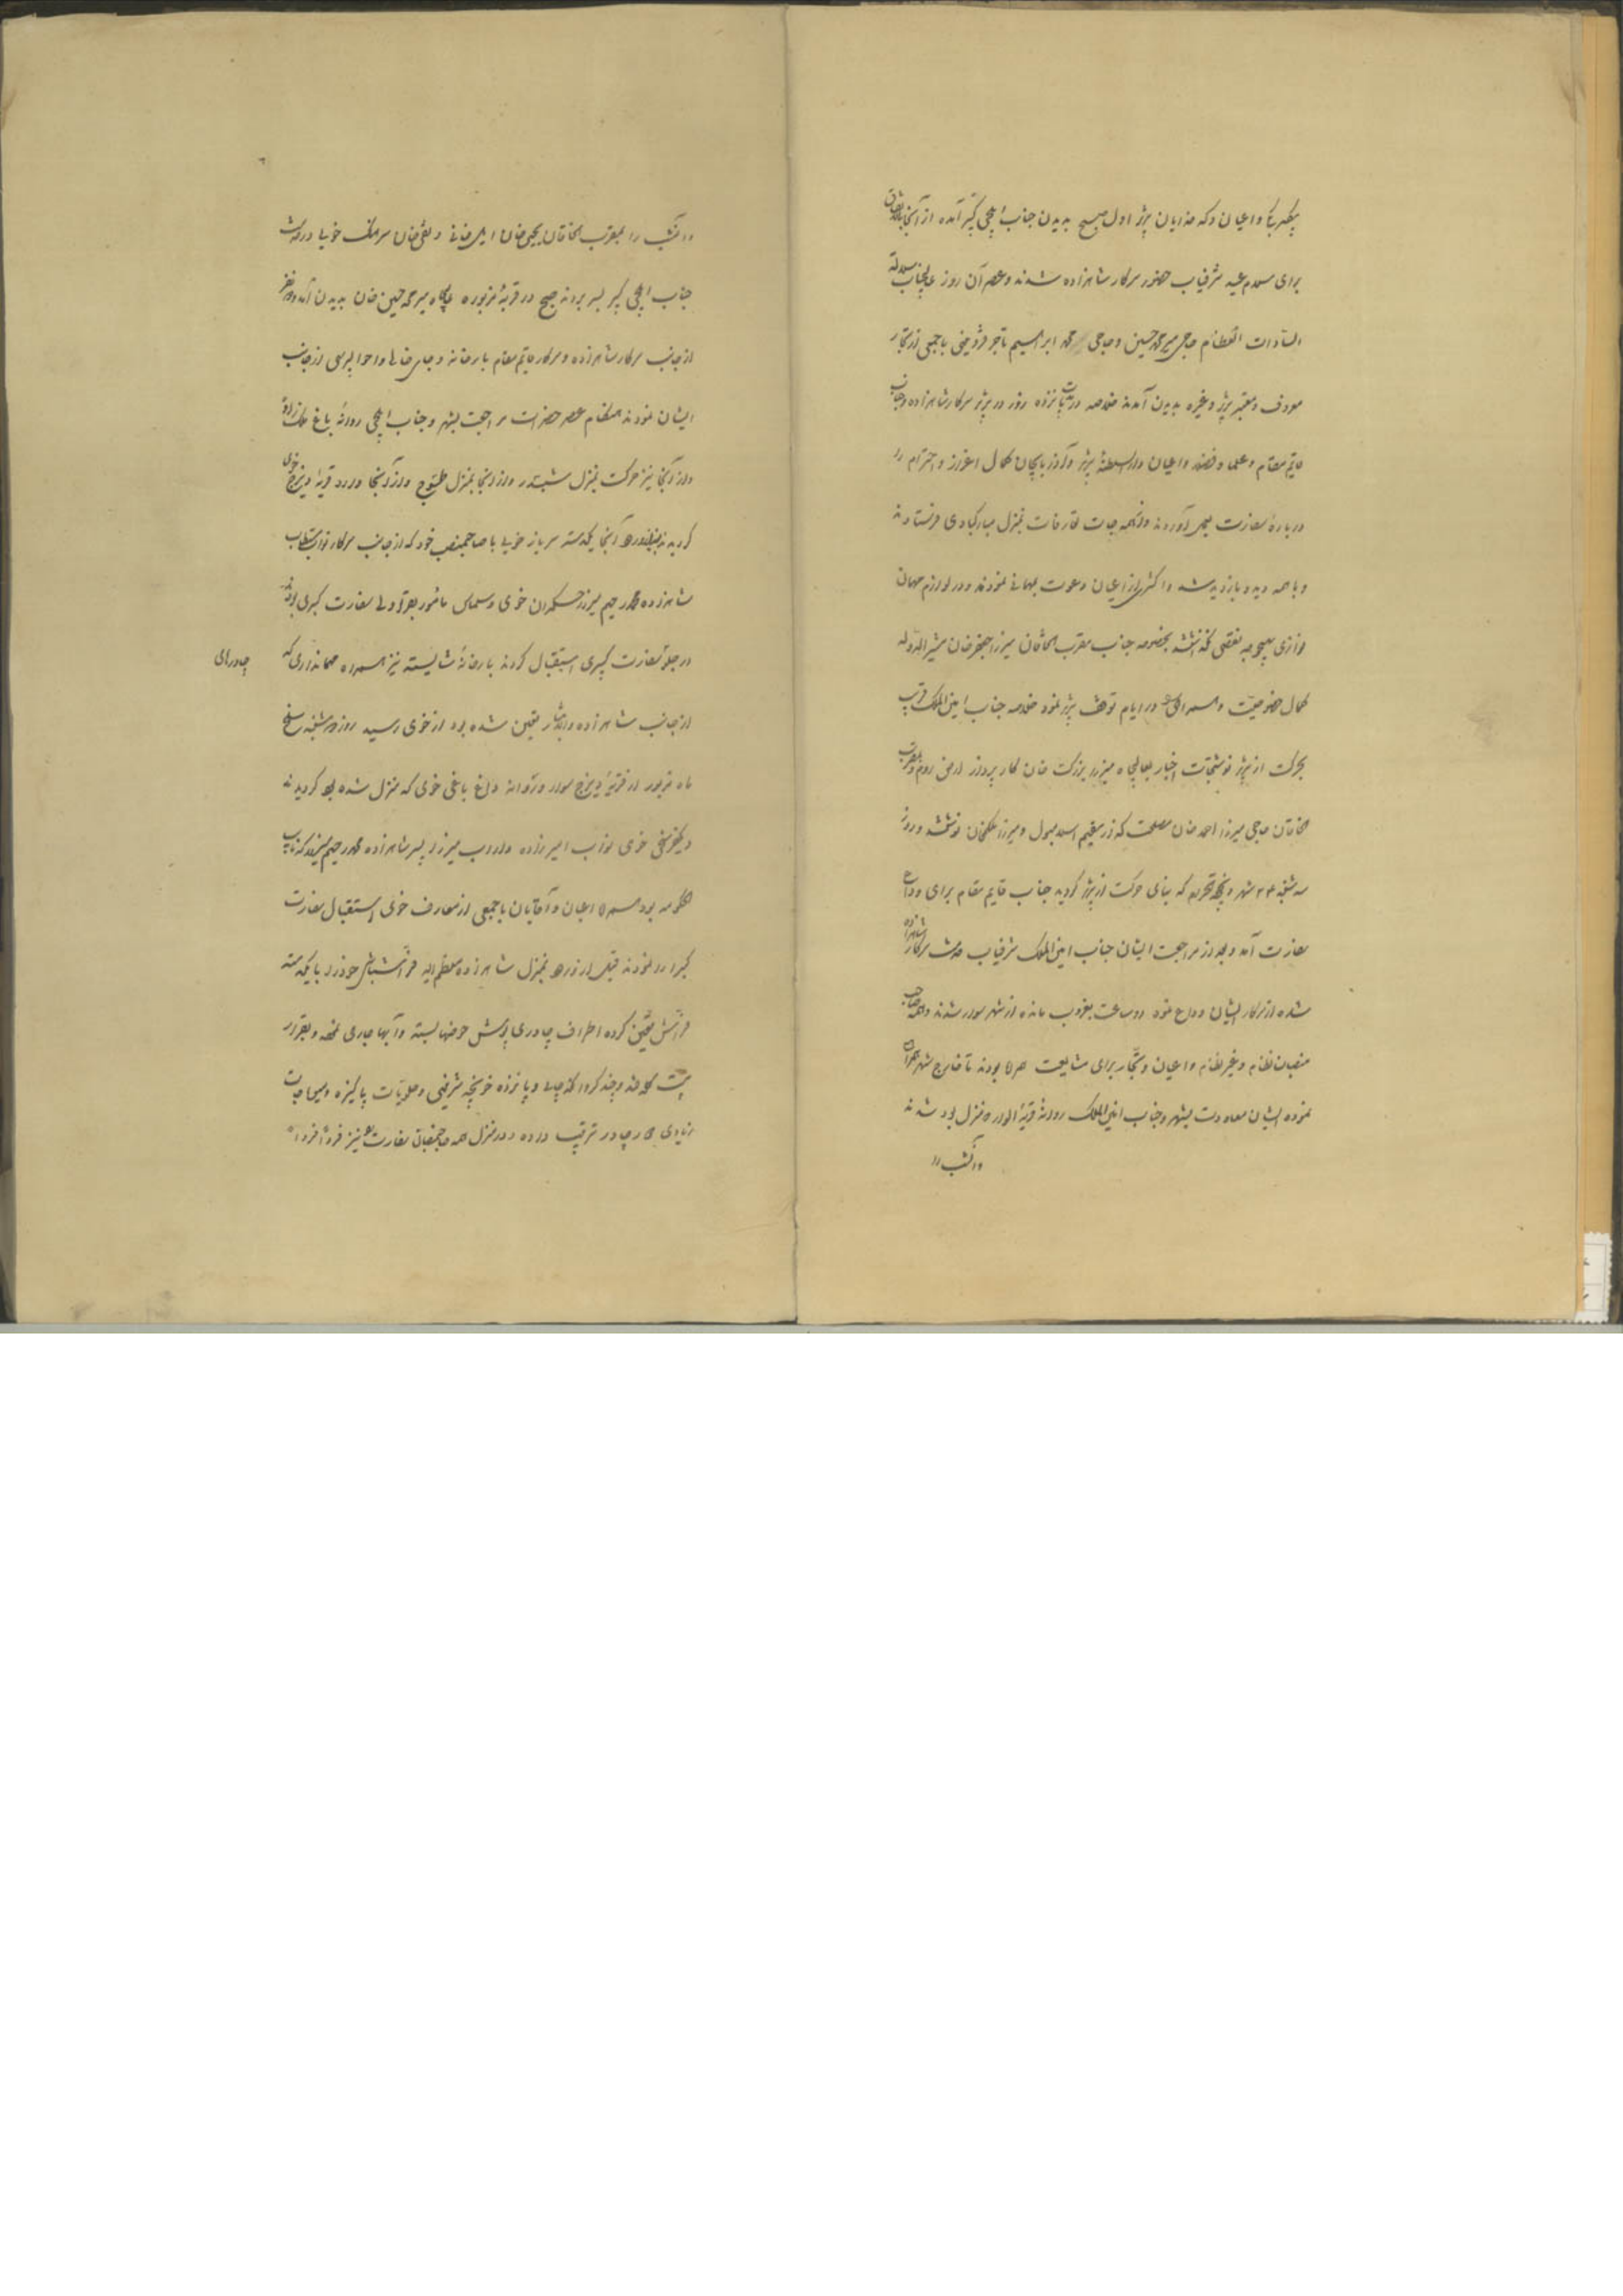 بیگلربیگی و اعیان و کدخدایان تبریز اول صبح بدیدن جناب ایلچی کبیر آمده از آنجا باتفاق
برای سلام عید شرفیاب حضور سرکار شاهزاده شدند و عصر آن روز عالیجناب سلالة
السادات العظام حاجی میر محمد حسین و حاجی محمد ابراهیم تاجر قزوینی با جمعی از تجار
معروف و معتبر تبریز و غیره بدیدن آمدند خلاصه در مدت پانزده روز در تبریز سرکار شاهزاده و جناب
قایم مقام و علما و فضلا و اعیان دارالسلطنه تبریز و آذربایجان کمال اعزاز و احترام را
درباره سفارت بعمل آوردند و از همه جهات تعارفات بمنزل مبارکبادی فرستادند
و با همه دید و بازدید شد و اکثر از اعیان دعوت مهمانی نمودند و در لوازم مهمان
نوازی بهیچوجه نقصی نگذاشتند بخصوصه جناب مقرب الخاقان میرزا جعفر خان مشیرالدوله
کمال خصوصیت و همراهی در ایام توقف تبریز نمود خلاصه جناب امین الملک قریب
بحرکت از تبریز نوشتجات اخبار بعالیجاه میرزا بزرگ خان کارپرداز ارض روم و مقرب
الخاقان حاجی میرزا احمد خان مصلحت گذار مقیم اسلامبول و میرزا ملکم خان نوشتند و روز
سه شنبه ۲۴ شهر ذیحجة الحرام که بنای حرکت از تبریز گردید جناب قایم مقام برای وداع
سفارت آمد و بعد از مراجعت ایشان جناب امین الملک شرفیاب خدمت سرکار شاهزاده
شده از سرکار ایشان وداع نمود دو ساعت بغروب مانده از شهر سوار شدند و همه صاحب
منصبان نظام و غیر نظام و اعیان و تجار برای مشایعت همراه بودند تا خارج شهر همراهی
نموده ایشان معاودت بشهر و جناب امین الملک روانه قریه الوار که منزل بود شدند
و آنشب را
و آنشب را بمقرب الخاقان یحیی خان ایلخانی و تقی خان سرهنگ خویی در خدمت
جناب ایلچی کبیر بسر بردند صبح در قریه مزبوره عالیجاه میر محمد حسین خان بدیدن آمد و دو نفر
از جانب سرکار شاهزاده و سرکار قایم مقام با رخانه و چای خانه و احوالپرسی از جانب
ایشان نمودند هنگام عصر حضرات مراجعت بشهر و جناب ایلچی روانه باغ ملک زاده
و از آنجا نیز حرکت بمنزل شبستر و از آنجا بمنزل طسوج و از آنجا وارد قریه دیزج خوی
گردیدند آنجا یکدسته سرباز خویی با صاحبمنصب خود که از جانب سرکار نواب مستطاب
شاهزاده محمد رحیم میرزا حکمران خوی و سلماس مامور بقراولی سفارت کبری بودند
در جلو سفارت کبری استقبال کردند بارخانه شایسته نیز همراه مهمانداری که
از جانب شاهزاده والاتبار تعیین شده بود از خوی رسید روز دوشنبه سلخ
ماه مزبور از قریه دیزج سوار و روانه داغ باغی خوی که منزل شده بود گردیدند
در یکفرسخی خوی نواب امیرزاده داراب میرزا پسر شاهزاده محمد رحیم میرزا که نایب
الحکومه بود همراه اعیان و آقایان با جمعی از معارف خوی استقبال سفارت
کبرا را نمودند قبل از ورود بمنزل شاهزاده معظم الیه فراشباشی خود را با یکدسته
فراش تعیین کرده اطراف چادری پوش حوضها بسته و آبها جاری نموده و بقرار
بیست کله قند و چند گروانکه چای و پانزده خوانچه شیرینی و حلویات پاکیزه و میوجات
زیادی در چادر ترتیب داده و در منزل همه صاحبمنصبان سفارت نیز فردا فردا
چادرهای